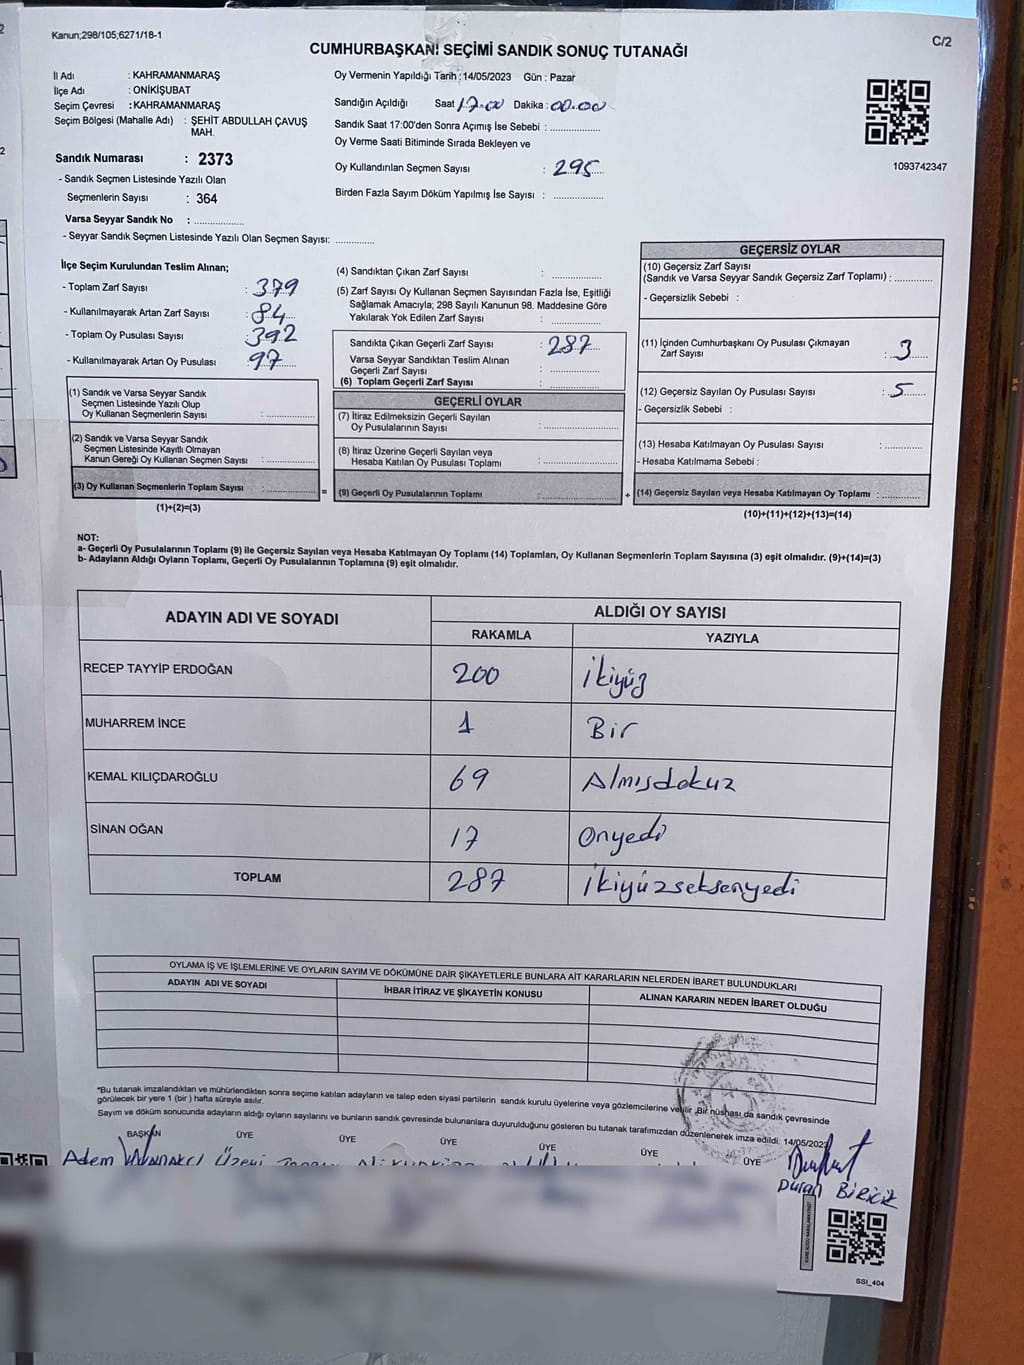 Kanun;298/105,6271/18-1
C/2
CUMHURBAŞKANI SEÇİMİ SANDIK SONUÇ TUTANAĞI
İl Adı : KAHRAMANMARAŞ
İlçe Adı : ONİKİŞUBAT
Seçim Çevresi : KAHRAMANMARAŞ
Seçim Bölgesi (Mahalle Adı) : ŞEHİT ABDULLAH ÇAVUŞ
MAH.
Sandık Numarası : 2373
- Sandık Seçmen Listesinde Yazılı Olan
Seçmenlerin Sayısı : 364
Varsa Seyyar Sandık No : ..............
- Seyyar Sandık Seçmen Listesinde Yazılı Olan Seçmen Sayısı: ............
Oy Vermenin Yapıldığı Tarih : 14/05/2023 Gün : Pazar
Sandığın Açıldığı Saat 17.00 Dakika : 00.00
Sandık Saat 17:00'den Sonra Açımış İse Sebebi : ..............
Oy Verme Saati Bitiminde Sırada Bekleyen ve
Oy Kullandırılan Seçmen Sayısı : 295
Birden Fazla Sayım Döküm Yapılmış İse Sayısı : ..............
1093742347
İlçe Seçim Kurulundan Teslim Alınan;
- Toplam Zarf Sayısı : 379
- Kullanılmayarak Artan Zarf Sayısı : 84
- Toplam Oy Pusulası Sayısı : 392
- Kullanılmayarak Artan Oy Pusulası : 97
(1) Sandık ve Varsa Seyyar Sandık
Seçmen Listesinde Yazılı Olup
Oy Kullanan Seçmenlerin Sayısı : ..............
(2) Sandık ve Varsa Seyyar Sandık
Seçmen Listesinde Kayıtlı Olmayan
Kanun Gereği Oy Kullanan Seçmen Sayısı : ..............
(3) Oy Kullanan Seçmenlerin Toplam Sayısı : ..............
(1)+(2)=(3)
(4) Sandıktan Çıkan Zarf Sayısı : ..............
(5) Zarf Sayısı Oy Kullanan Seçmen Sayısından Fazla İse, Eşitliği
Sağlamak Amacıyla; 298 Sayılı Kanunun 98. Maddesine Göre
Yakılarak Yok Edilen Zarf Sayısı : ..............
Sandıkta Çıkan Geçerli Zarf Sayısı : 287
Varsa Seyyar Sandıktan Teslim Alınan
Geçerli Zarf Sayısı : ..............
(6) Toplam Geçerli Zarf Sayısı : ..............
GEÇERLİ OYLAR
(7) İtiraz Edilmeksizin Geçerli Sayılan
Oy Pusulalarının Sayısı : ..............
(8) İtiraz Üzerine Geçerli Sayılan veya
Hesaba Katılan Oy Pusulası Toplamı : ..............
= (9) Geçerli Oy Pusulalarının Toplamı : ..............
GEÇERSİZ OYLAR
(10) Geçersiz Zarf Sayısı
(Sandık ve Varsa Seyyar Sandık Geçersiz Zarf Toplamı) : ............
- Geçersizlik Sebebi :
(11) İçinden Cumhurbaşkanı Oy Pusulası Çıkmayan
Zarf Sayısı : 3
(12) Geçersiz Sayılan Oy Pusulası Sayısı : 5
- Geçersizlik Sebebi :
(13) Hesaba Katılmayan Oy Pusulası Sayısı : ............
- Hesaba Katılmama Sebebi :
+ (14) Geçersiz Sayılan veya Hesaba Katılmayan Oy Toplamı : ............
(10)+(11)+(12)+(13)=(14)
NOT:
a- Geçerli Oy Pusulalarının Toplamı (9) ile Geçersiz Sayılan veya Hesaba Katılmayan Oy Toplamı (14) Toplamları, Oy Kullanan Seçmenlerin Toplam Sayısına (3) eşit olmalıdır. (9)+(14)=(3)
b- Adayların Aldığı Oyların Toplamı, Geçerli Oy Pusulalarının Toplamına (9) eşit olmalıdır.
ADAYIN ADI VE SOYADI ALDIĞI OY SAYISI
RAKAMLA YAZIYLA
RECEP TAYYİP ERDOĞAN 200 İkiyüz
MUHARREM İNCE 1 Bir
KEMAL KILIÇDAROĞLU 69 Almışdokuz
SİNAN OĞAN 17 Onyedi
TOPLAM 287 İkiyüzseksenyedi
OYLAMA İŞ VE İŞLEMLERİNE VE OYLARIN SAYIM VE DÖKÜMÜNE DAİR ŞİKAYETLERLE BUNLARA AİT KARARLARIN NELERDEN İBARET BULUNDUKLARI
ADAYIN ADI VE SOYADI İHBAR İTİRAZ VE ŞİKAYETİN KONUSU ALINAN KARARIN NEDEN İBARET OLDUĞU
*Bu tutanak imzalandıktan ve mühürlendikten sonra seçime katılan adayların ve talep eden siyasi partilerin sandık kurulu üyelerine veya gözlemcilerine verilir. Bir nüshası da sandık çevresinde
görülecek bir yere 1 (bir) hafta süreyle asılır.
Sayım ve döküm sonucunda adayların aldığı oyların sayılarını ve bunların sandık çevresinde bulunanlara duyurulduğunu gösteren bu tutanak tarafımızdan düzenlenerek imza edildi: 14/05/2023
BAŞKAN ÜYE ÜYE ÜYE ÜYE ÜYE ÜYE
Adem
Duran BİRİCİK
SSI_404